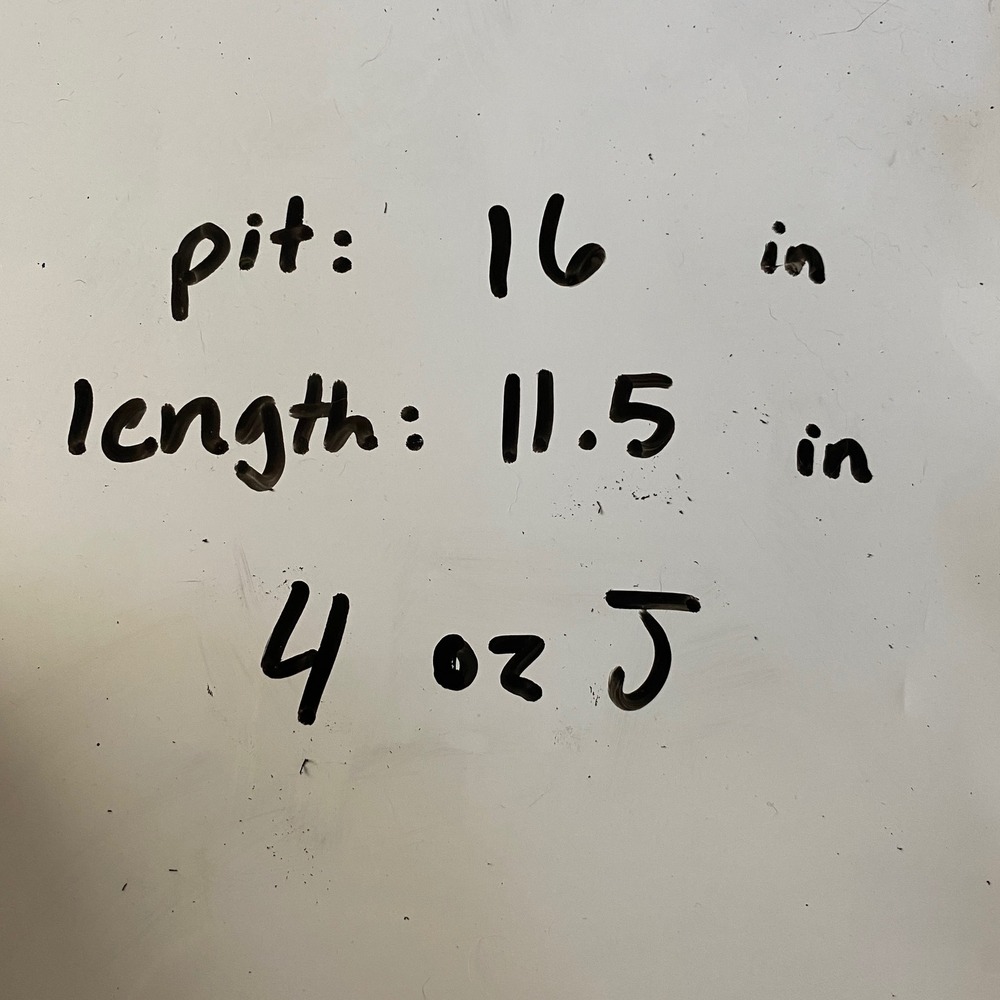 pit: 16 in
length: 11.5 in
4 oz J